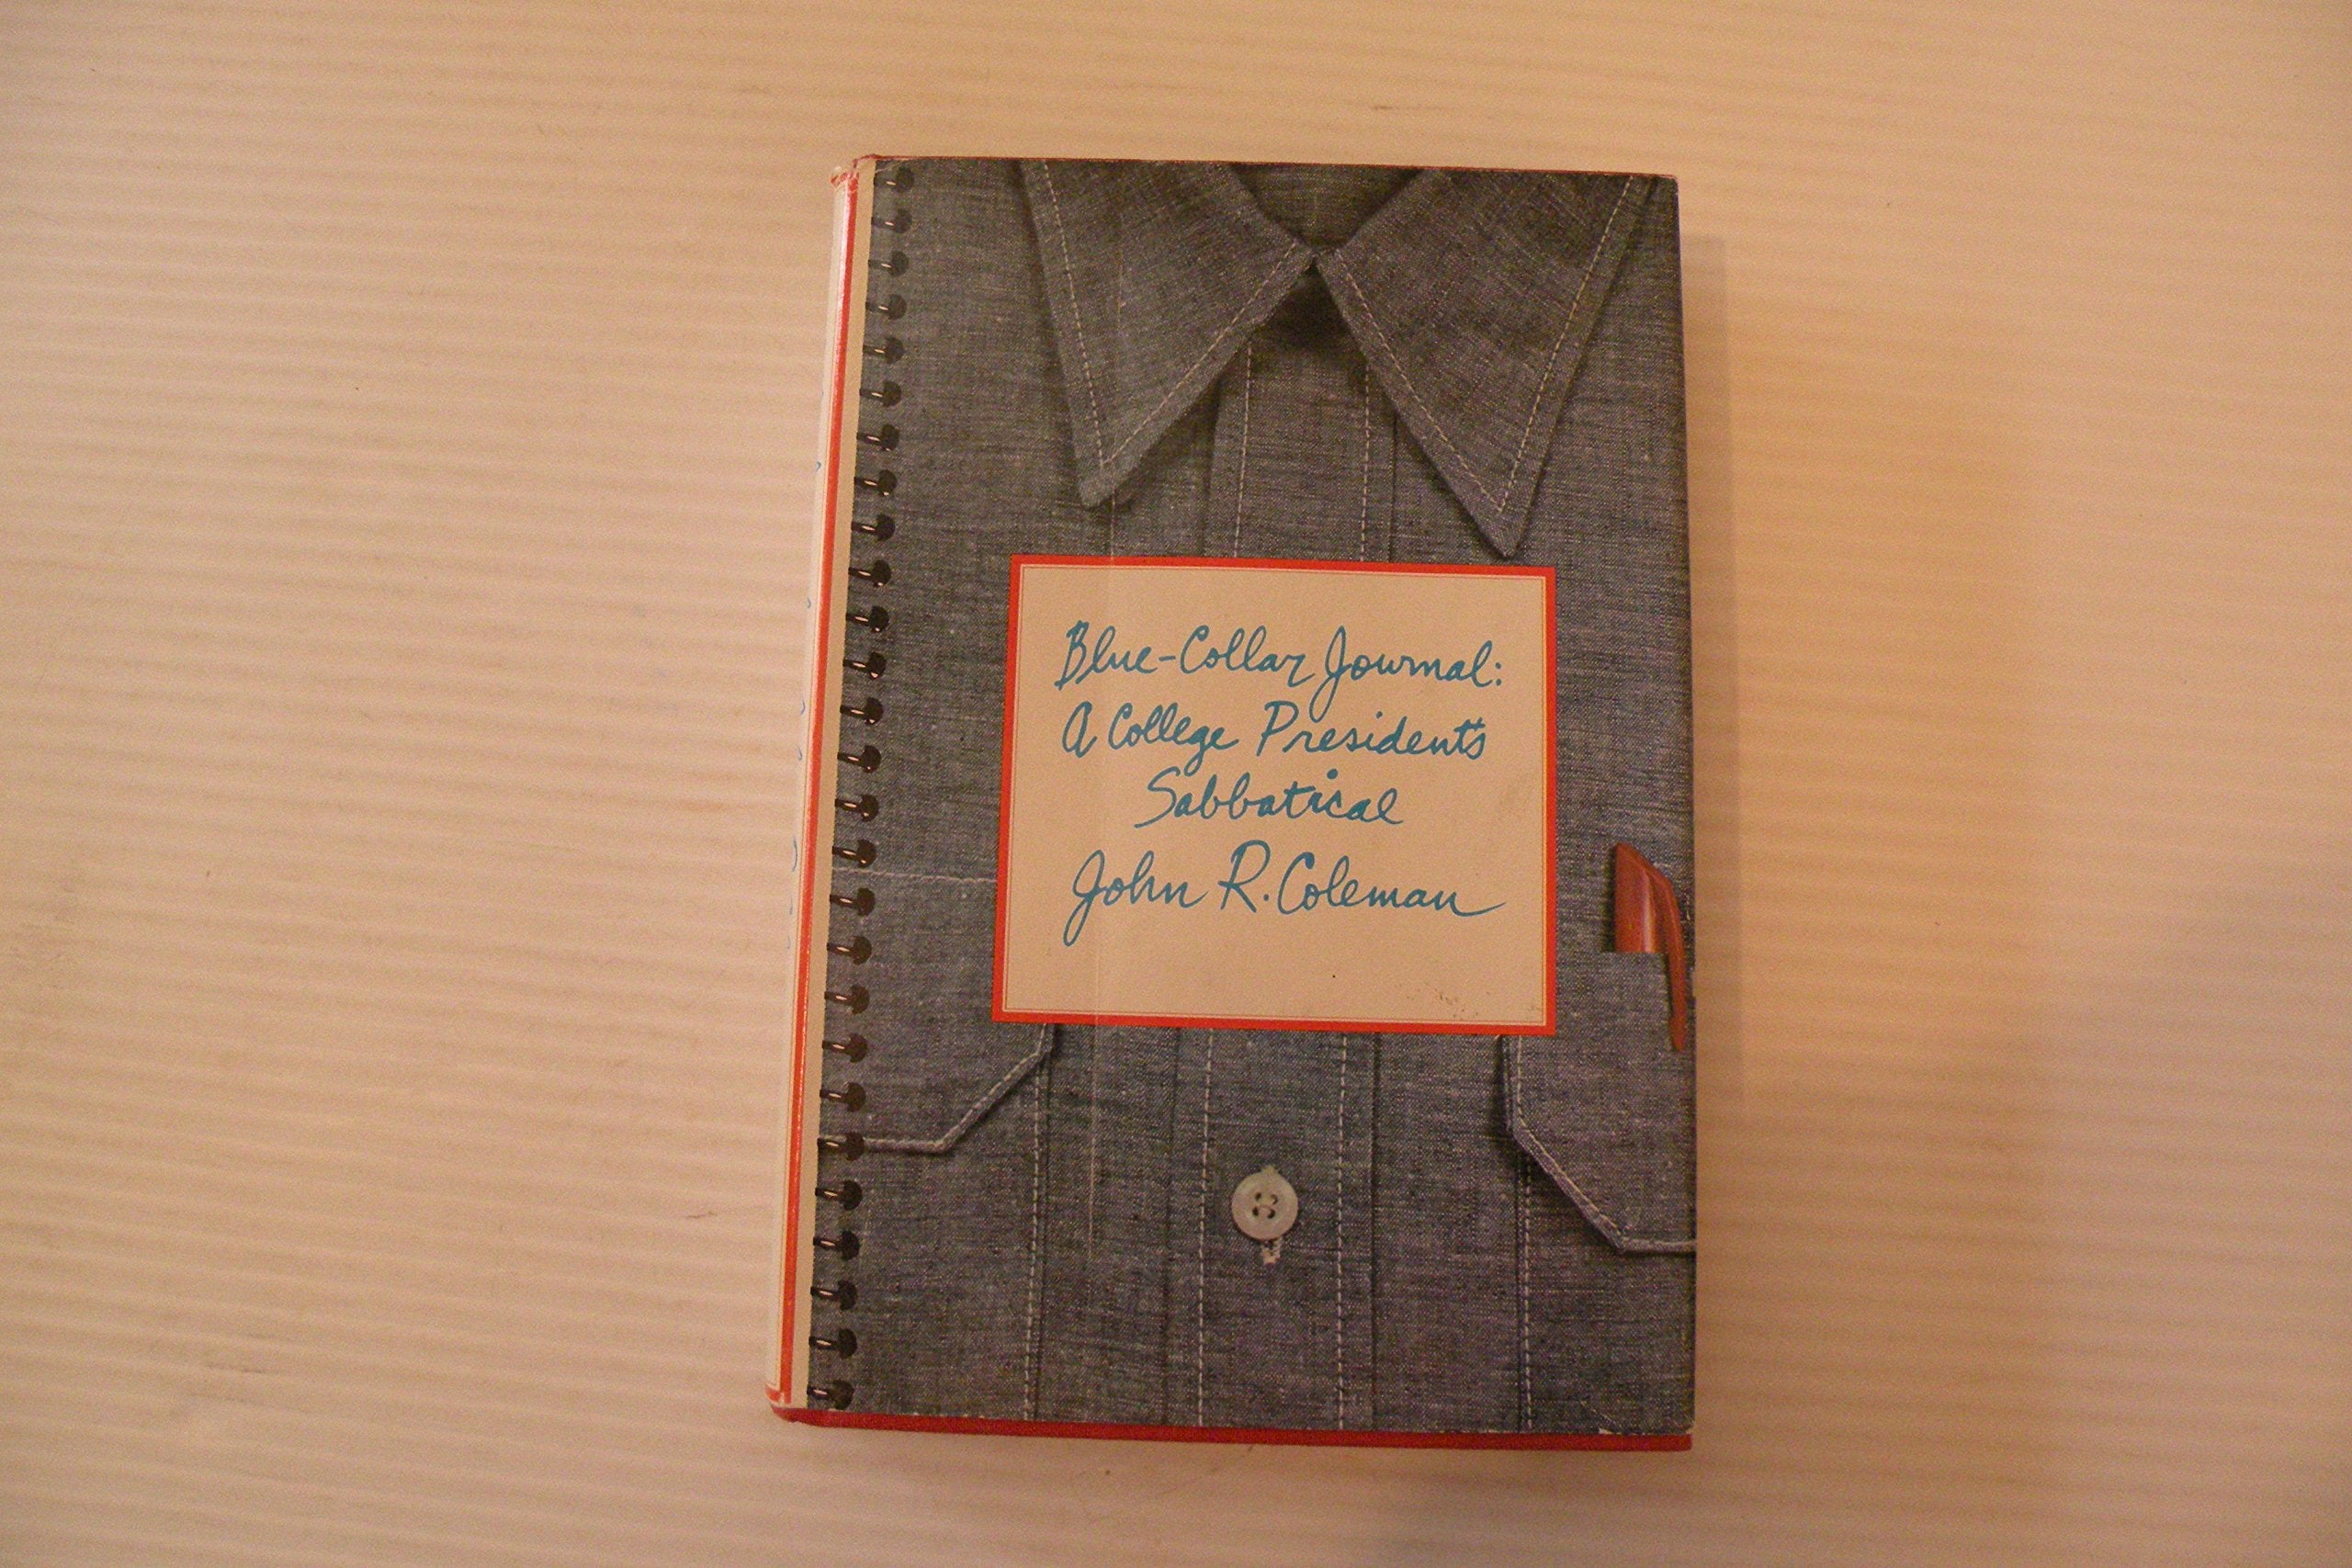 Blue-Collar Journal:
A College President's
Sabbatical
John R. Coleman